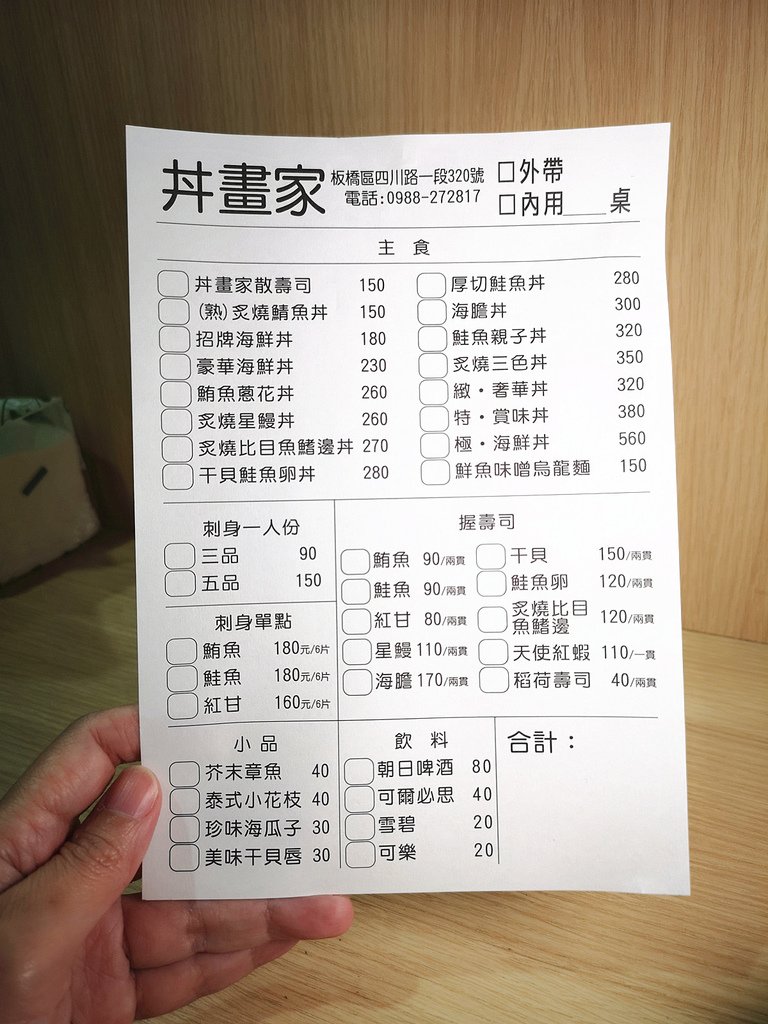 丼畫家
板橋區四川路一段320號
電話:0988-272817
□外帶
□內用___桌
主 食
丼畫家散壽司 150
(熟)炙燒鯖魚丼 150
招牌海鮮丼 180
豪華海鮮丼 230
鮪魚蔥花丼 260
炙燒星鰻丼 260
炙燒比目魚鰭邊丼 270
干貝鮭魚卵丼 280
厚切鮭魚丼 280
海膽丼 300
鮭魚親子丼 320
炙燒三色丼 350
緻・奢華丼 320
特・賞味丼 380
極・海鮮丼 560
鮮魚味噌烏龍麵 150
刺身一人份
三品 90
五品 150
刺身單點
鮪魚 180元/6片
鮭魚 180元/6片
紅甘 160元/6片
握壽司
鮪魚 90/兩貫
鮭魚 90/兩貫
紅甘 80/兩貫
星鰻 110/兩貫
海膽 170/兩貫
干貝 150/兩貫
鮭魚卵 120/兩貫
炙燒比目
魚鰭邊 120/兩貫
天使紅蝦 110/一貫
稻荷壽司 40/兩貫
小 品
芥末章魚 40
泰式小花枝 40
珍味海瓜子 30
美味干貝唇 30
飲 料
朝日啤酒 80
可爾必思 40
雪碧 20
可樂 20
合計：